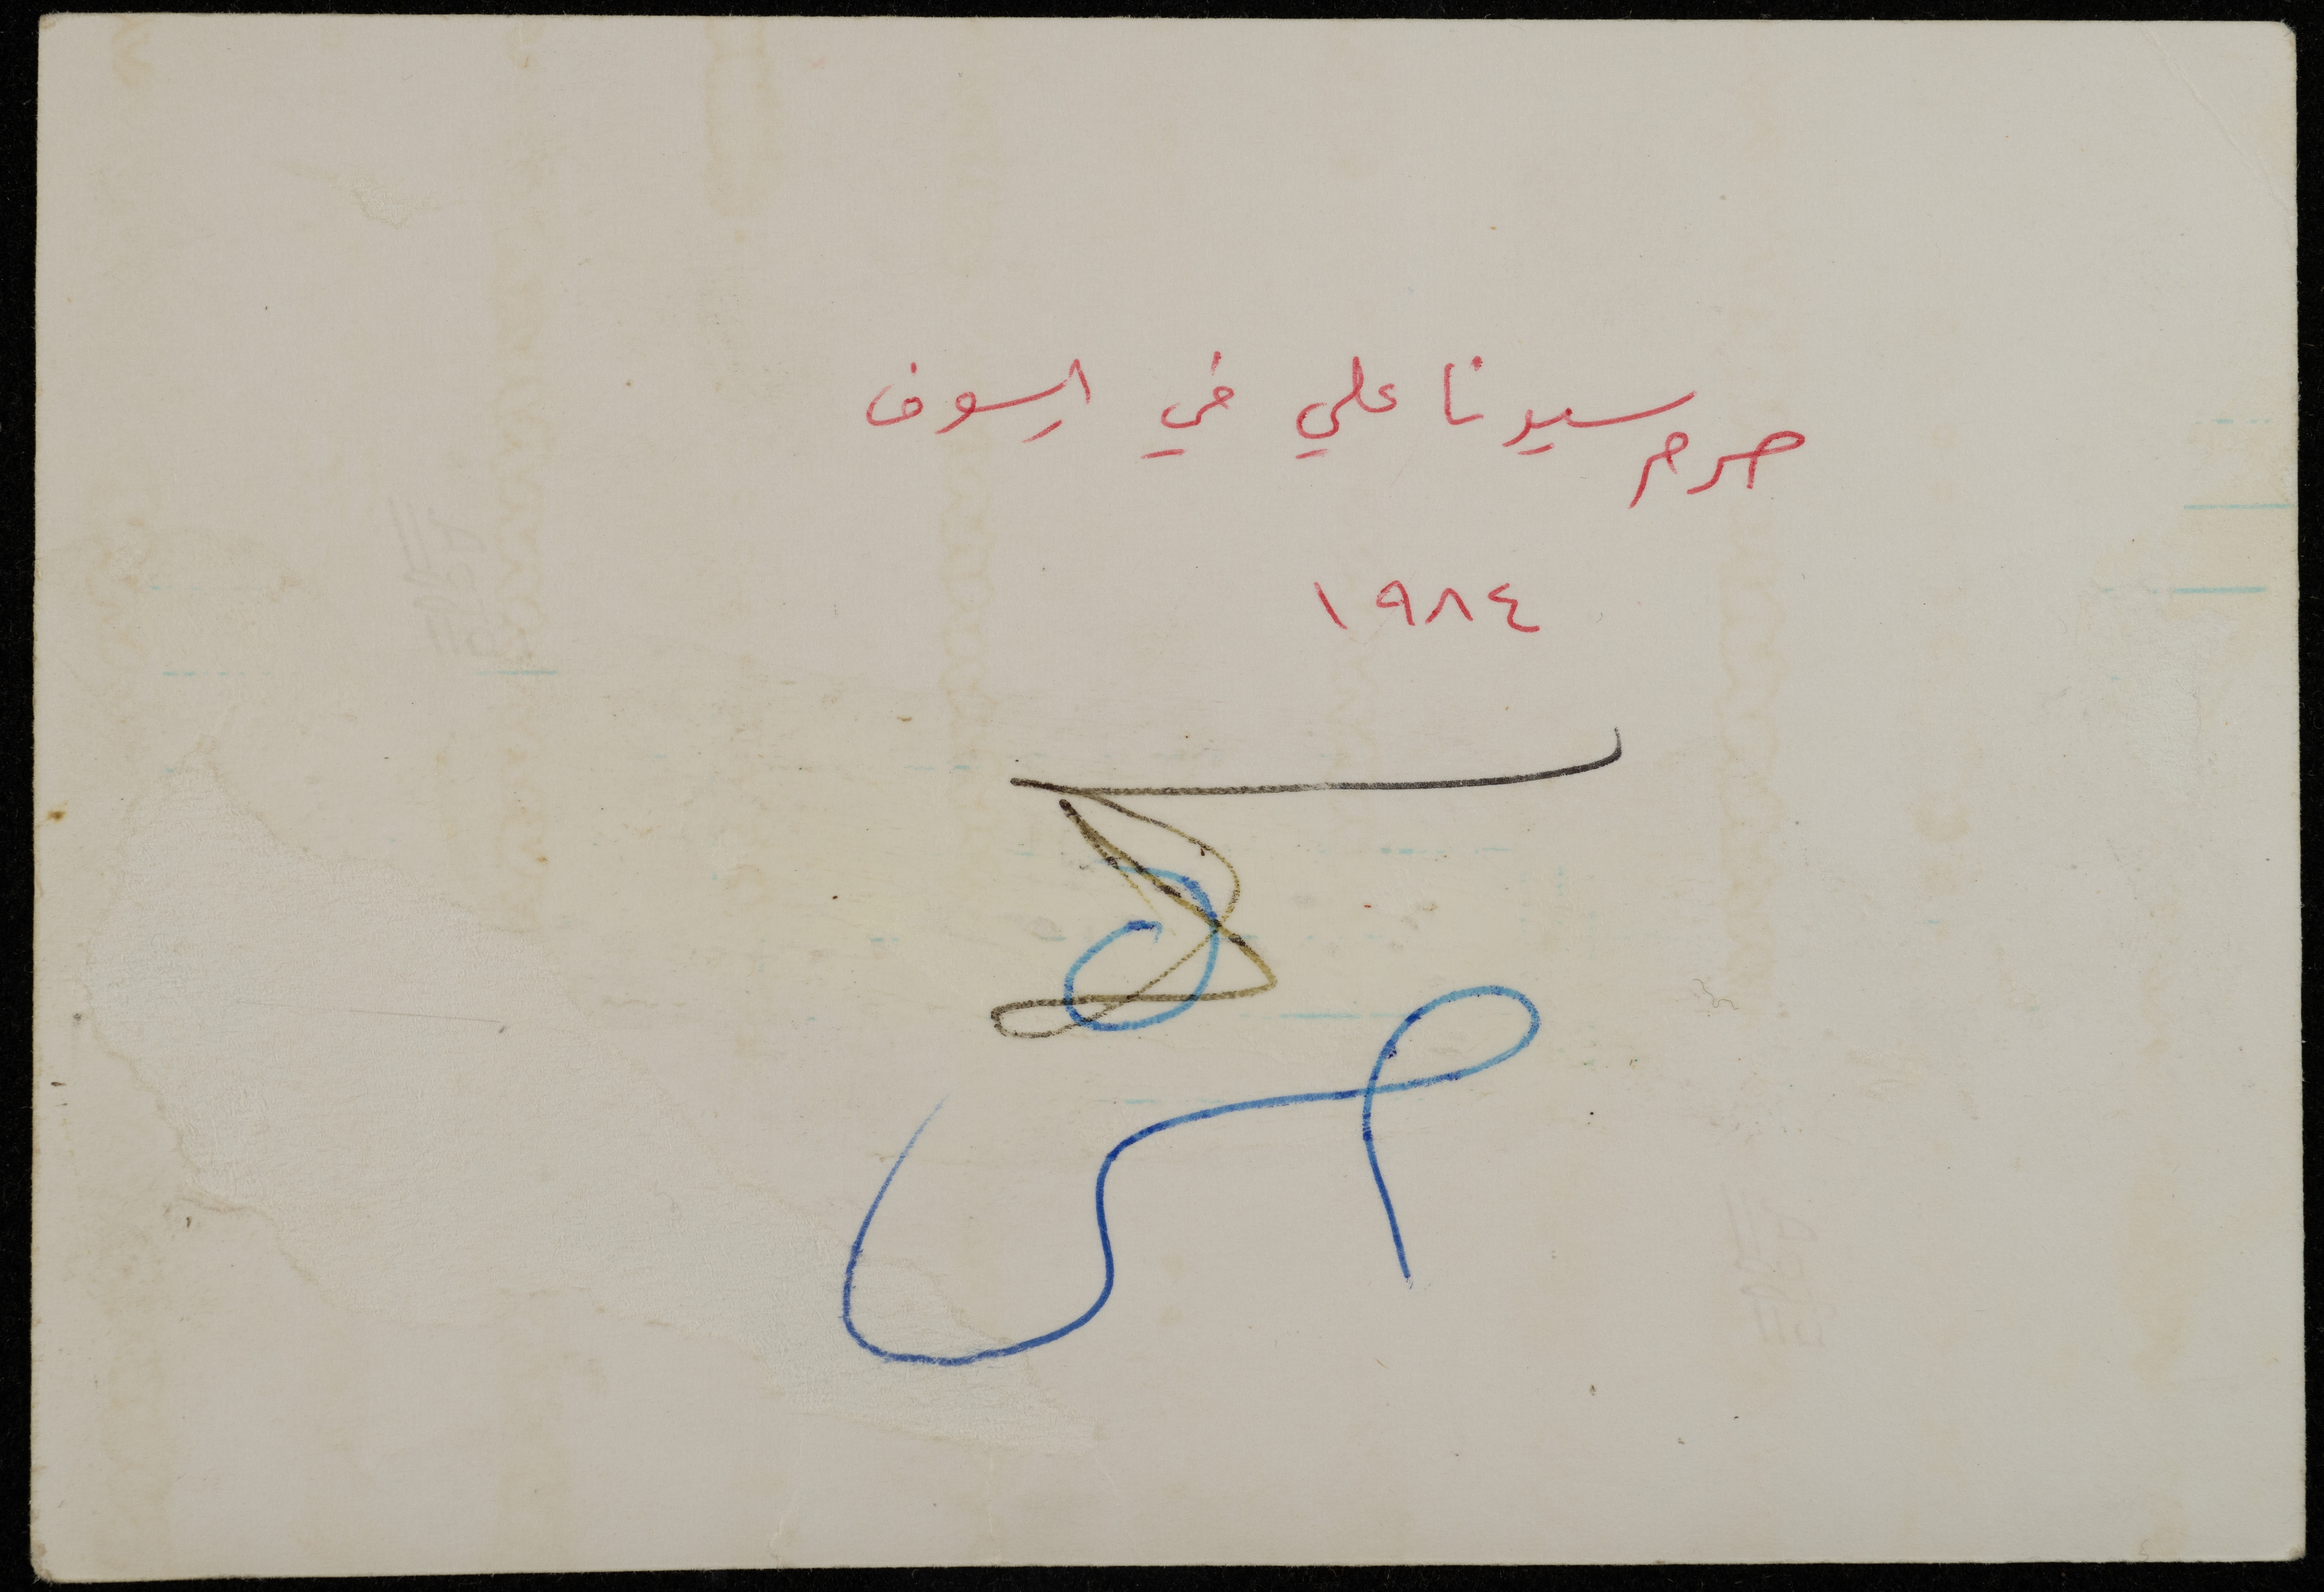 حرم سيدنا علي في ارسوف
١٩٨٤